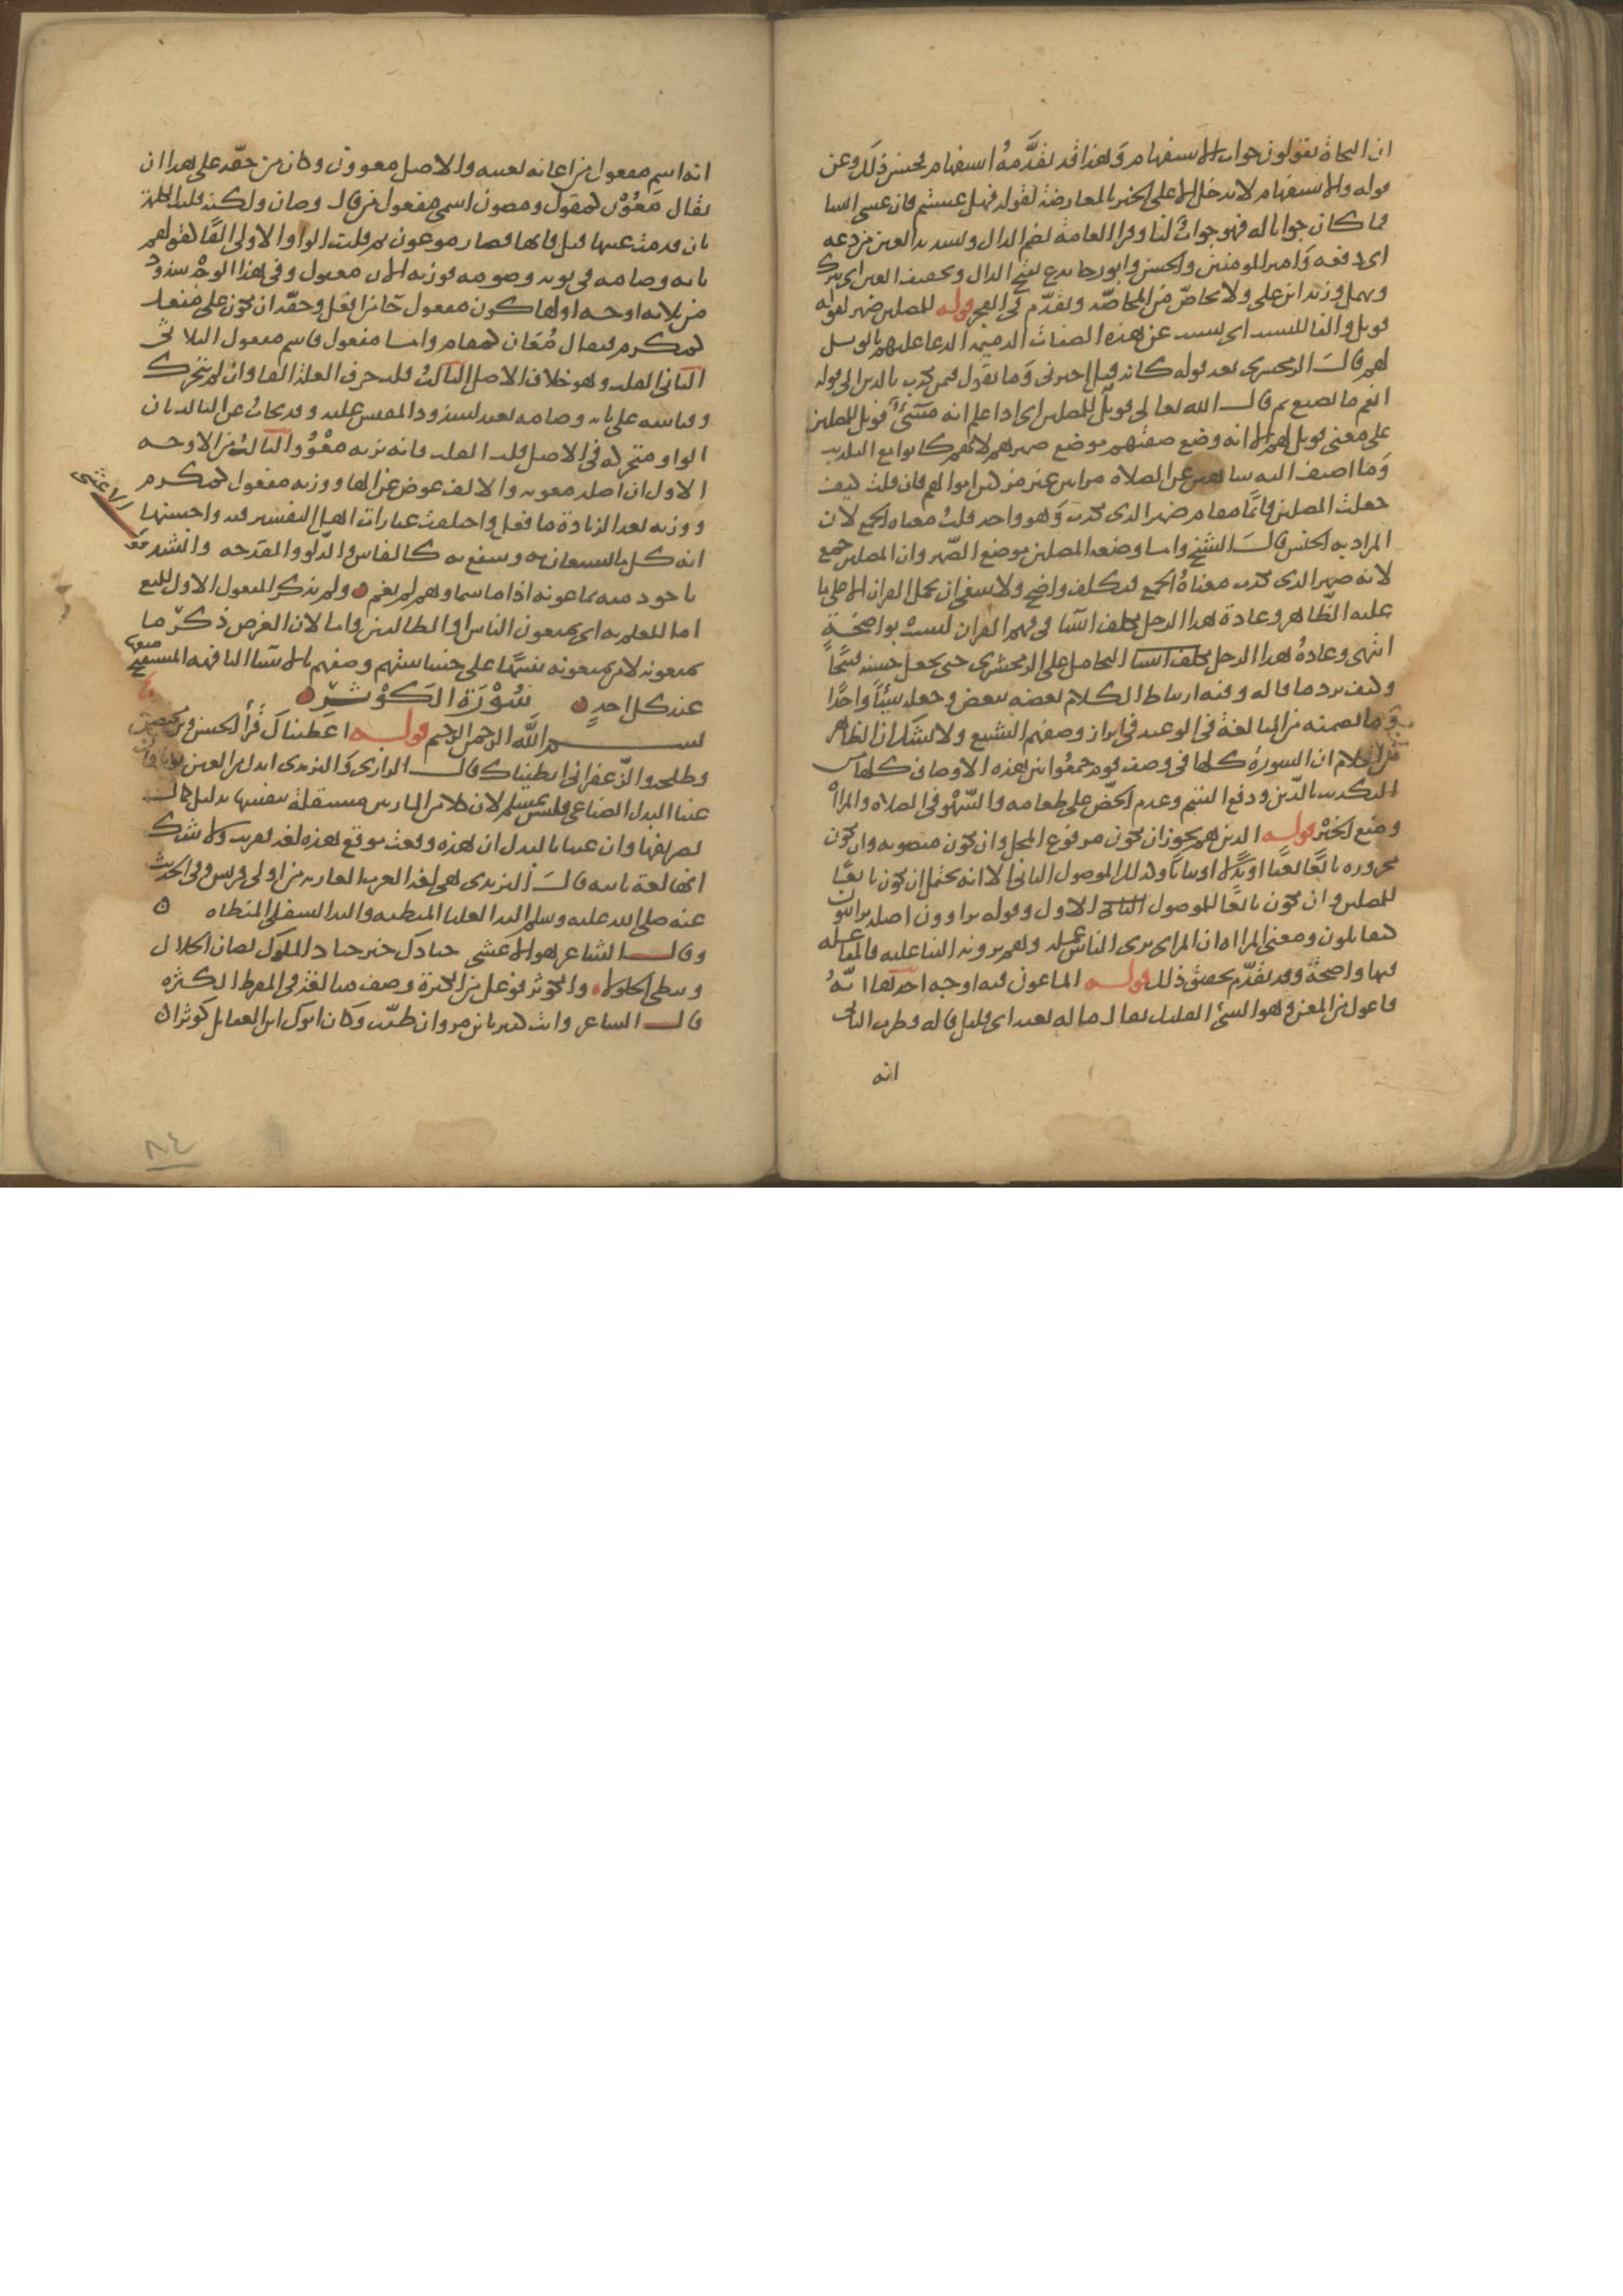 ان النحاة يقولون جواب الاستفهام وهذا قد تقدمه استفهام فحسن ذلك وعن
قوله والاستفهام لا يدخل الا على الخبر بالمعارضة لقوله فهل عسيتم فان عسى انشا
فما كان جوابا له فهو جواب لنا وقرا العامة بضم الدال وتشديد العين من دعه
اى دفعه وامير المومنين والحسن وابو رجا يدع بفتح الدال وتخفيف العين اى يترك
ويهمل وزيد ابن على ولا يحاض من المحاضة وتقدم فى الفجر قوله للمصلين خبر لقوله
فويل والفا للتسبب اى تسبب عن هذه الصفات الذميمة الدعا عليهم بالويل
لهم قال الزمخشرى بعد قوله كانه قيل اخبرنى وما تقول فيمن يكذب بالدين الى قوله
انعم ما يصنع ثم قال الله تعالى فويل للمصلين اى اذا علم انه مسئ فويل للمصلين
على معنى فويل لهم الا انه وضع صفتهم موضع ضميرهم لانهم كانوا مع التكذيب
وما اضيف اليه ساهين عن الصلاة مرايين غير مزكين اموالهم فان قلت كيف
جعلت المصلين قايما مقام ضمير الذى يكذب وهو واحد قلت معناه الجمع لان
المراد به الجنس قال الشيخ واما وضعه المصلين موضع الضمير وان المصلين جمع
لانه ضمير الذى يكذب معناه الجمع فتكلف واضح ولا ينبغى ان يحمل القران الا على ما
عليه الظاهر وعادة هذا الرجل يتكلف اشيا فى فهم القران ليست بواضحة
انتهى وعادة هذا الرجل التحامل على الزمخشرى حتى يجعل حسنه قبيحا
وكيف يرد ما قاله وفيه ارتباط الكلام بعضه ببعض وجعله شيئا واحدا
وما تضمنه من المبالغة فى الوعيد فى ابراز وصفهم الشنيع ولا يشك ان الظاهر
من الكلام ان السورة كلها فى وصف قوم جمعوا بين هذه الاوصاف كلها من
التكذيب بالدين ودفع اليتيم وعدم الحض على طعامه والسهو فى الصلاة والمراأة
ومنع الخير قوله الذين هم يجوز ان يكون مرفوع المحل وان يكون منصوبه وان يكون
مجروره تابعا نعتا او بدلا او بيانا وكذلك الموصول الثانى الا انه يحتمل ان يكون تابعا
للمصلين وان يكون تابعا للموصول الاول وقوله يراوون اصله يرائيون
كيقاتلون ومعنى المراأة ان المرائى يرى الناس عمله وهم يرونه الثنا عليه فالمفاعلة
فيها واضحة وقد تقدم تحقيق ذلك قوله الماعون فيه اوجه احدها انه
فاعول من المعن وهو الشئ القليل يقال ما له معنه اى قليل قاله قطرب الثانى
انه
انه اسم مفعول من اعانه يعينه والاصل معوون وكان من حقه على هذا ان
يقال معون كمقول ومصون اسمى مفعول من قال وصان ولكنه قلبت الكلمة
بان قدمت عينها قبل فائها فصار موعون ثم قلبت الواو الاولى الفا كقولهم
تابة وصامة فى توبة وصومة فوزنه الان معفول وفى هذا الوجه شذوذ
من ثلاثة اوجه اولها كون مفعول جا من افعل وحقه ان يكون على مفعل
كمكرم فيقال معان كمقام واما مفعول فاسم مفعول الثلاثى
الثانى القلب وهو خلاف الاصل الثالث قلب حرف العلة الفا وان لم يتحرك
وقياسه على تابة وصامة بعيد لشذوذ المقيس عليه وقد يجاب عن الثالث بان
الواو متحركة فى الاصل قبل القلب فانه بزنة معوون الثالث من الاوجه
الاول ان اصله معونة والالف عوض عن الها ووزنه مفعول كمكرم
ووزنه بعد الزيادة ما فعل واختلفت عبارات اهل التفسير فيه واحسنها
انه كل ما يستعان به وينتفع به كالفاس والدلو والمقدحة وانشد قول
الاعشى
باجود منه بماعونه اذا ما سماوهم لم تغم ولم يذكر المفعول الاول للمنع
اما للعلم به اى يمنعون الناس او الطالبين واما لان الغرض ذكر ما
يمنعونه لا من يمنعونه تنبيها على خساستهم وضنهم بالاشيا التافهة المستقبح منعها
عند كل احد سورة الكوثر
بسم الله الرحمن الرحيم قوله اعطيناك قرأ الحسن وابن محيصن
وطلحة والزعفرانى انطيناك قال الرازى والتبريزى ابدل من العين نونا فان
عنيا البدل الصناعى فليس بمسلم لان كلا من المادتين مستقلة بنفسها بدليل كمال
تصريفها وان عنيا بالبدل ان هذه وقعت موقع هذه لغة فقريب ولا شك
انها لغة ثابتة قال التبريزى هى لغة العرب العاربة من اولى قريش وفى الحديث
عنه صلى الله عليه وسلم اليد العليا المنطية واليد السفلى المنطاه
وقال الشاعر هو الاعشى جيادك خير جياد الملوك تصان الجلال
وتنطى الحلولا والكوثر فوعل من الكثرة وصف مبالغة فى المفرط الكثرة
قال الشاعر وانت كثير يا ابن مروان طيب وكان ابوك ابن العقايل كوثرا
٨٤